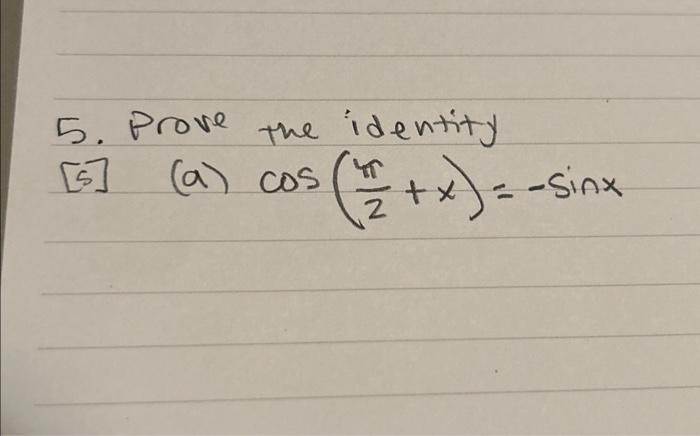 5. Prove the identity
[5] (a) cos(π/2 + x) = -sinx